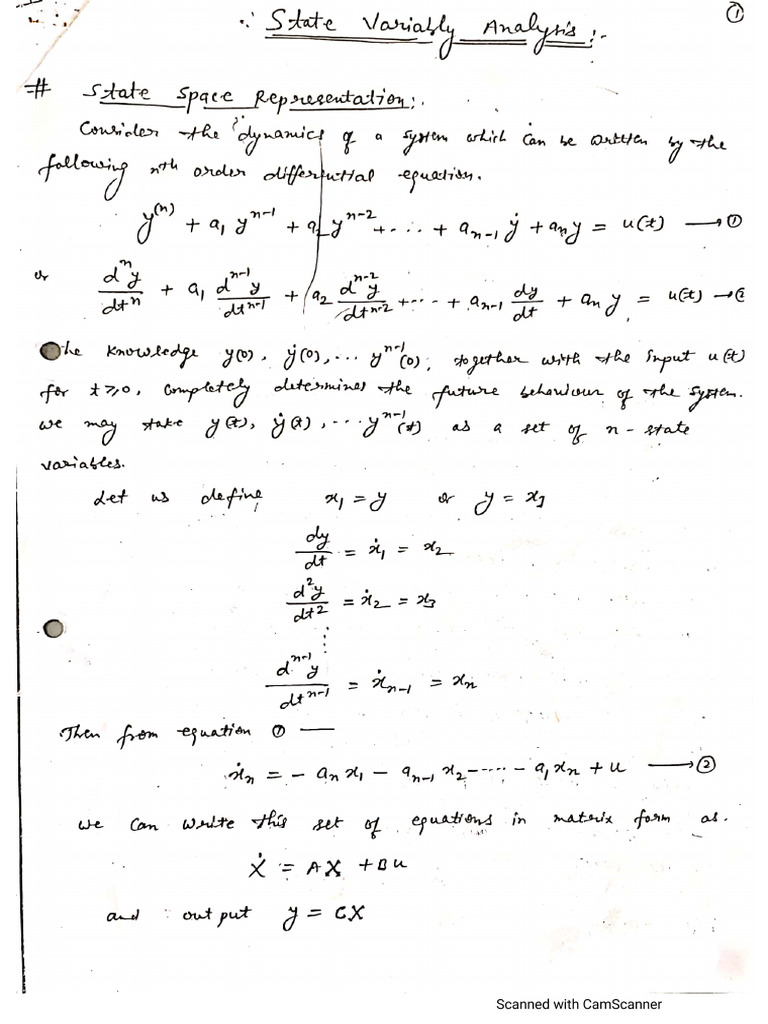 ①
∴ State Variably Analysis :-
# State Space Representation :.
Consider the dynamics of a system which can be written by the
following nth order differential equation.
y^(n) + a₁ y^n-1 + a₂ y^n-2 + ... + aₙ₋₁ ẏ + aₙy = u(t) → ①
or dⁿy/dtⁿ + a₁ d^n-1y/dt^n-1 + a₂ d^n-2y/dt^n-2 + ... + aₙ₋₁ dy/dt + aₙ y = u(t)
The knowledge y(0), ẏ(0), ... y^n-1(0), together with the input u(t)
for t ≥ 0, completely determines the future behaviour of the system.
we may take y(t), ẏ(t), ... y^n-1(t) as a set of n - state
variables.
Let us define x₁ = y or y = x₁
dy/dt = ẋ₁ = x₂
d²y/dt² = ẋ₂ = x₃
⋮
d^n-1y/dt^n-1 = ẋₙ₋₁ = xₙ
Then from equation ① —
ẋₙ = - aₙ x₁ - aₙ₋₁ x₂ - .... - a₁ xₙ + u → ②
we can write this set of equations in matrix form as.
Ẋ = AX + BU
and output y = CX
Scanned with CamScanner